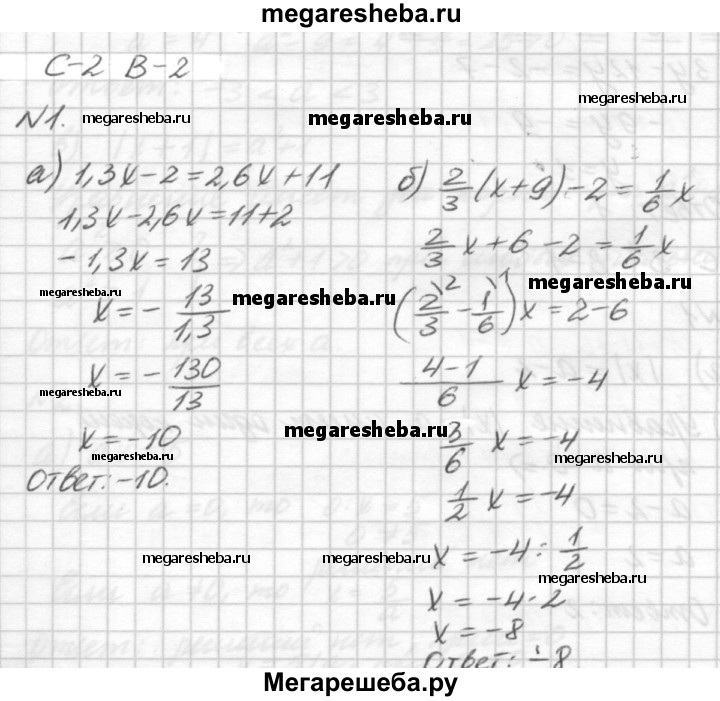 megaresheba.ru
С-2 В-2
N1. megaresheba.ru megaresheba.ru megaresheba.ru
а) 1,3x-2=2,6x+11
1,3x-2,6x=11+2
-1,3x=13
megaresheba.ru
x=-13/1,3
megaresheba.ru
x=-130/13
megaresheba.ru
x=-10
megaresheba.ru
Ответ: -10.
megaresheba.ru
б) 2/3(x+9)-2=1/6x
2/3x+6-2=1/6x
megaresheba.ru
(2/3\2-1/6\1)x=2-6
4-1/6 x=-4
megaresheba.ru
3/6 x=-4
megaresheba.ru
1/2 x=-4
x=-4:1/2
megaresheba.ru
megaresheba.ru
x=-4·2
x=-8
Ответ: -8
Мегарешеба.ру